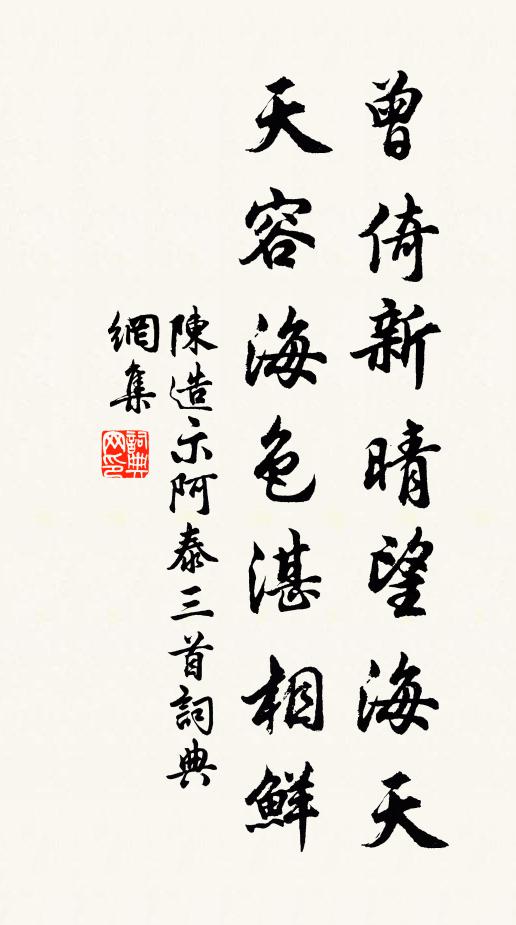 曾倚新晴望海天
天容海色湛相鮮
陳造示阿泰三首詞典
網集
詞典
网印